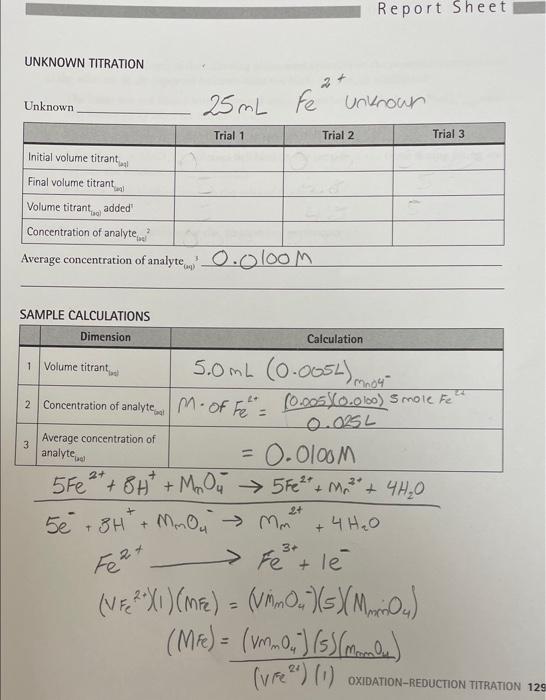 Report Sheet
UNKNOWN TITRATION
Unknown 25mL Fe²⁺ Unknown
Trial 1 Trial 2 Trial 3
Initial volume titrant(aq)
Final volume titrant(aq)
Volume titrant(aq) added¹
Concentration of analyte(aq)²
Average concentration of analyte(aq)³ 0.0100M
SAMPLE CALCULATIONS
Dimension Calculation
1 Volume titrant(aq) 5.0mL (0.005L)MnO4⁻
2 Concentration of analyte(aq) M. of Fe²⁺ = (0.005)(0.0100) 5 mole Fe²⁺
0.025L
3 Average concentration of analyte(aq) = 0.0100M
5Fe²⁺ + 8H⁺ + MnO₄⁻ → 5Fe²⁺ + Mn²⁺ + 4H₂O
5e⁻ + 8H⁺ + MnO₄⁻ → Mn²⁺ + 4H₂O
Fe²⁺ → Fe³⁺ + 1e⁻
(VFe²⁺)(1)(MFe) = (VMnO₄⁻)(5)(MMnO₄)
(MFe) = (VMnO₄⁻)(5)(MMnO₄)
(VFe²⁺)(1)
OXIDATION–REDUCTION TITRATION 129